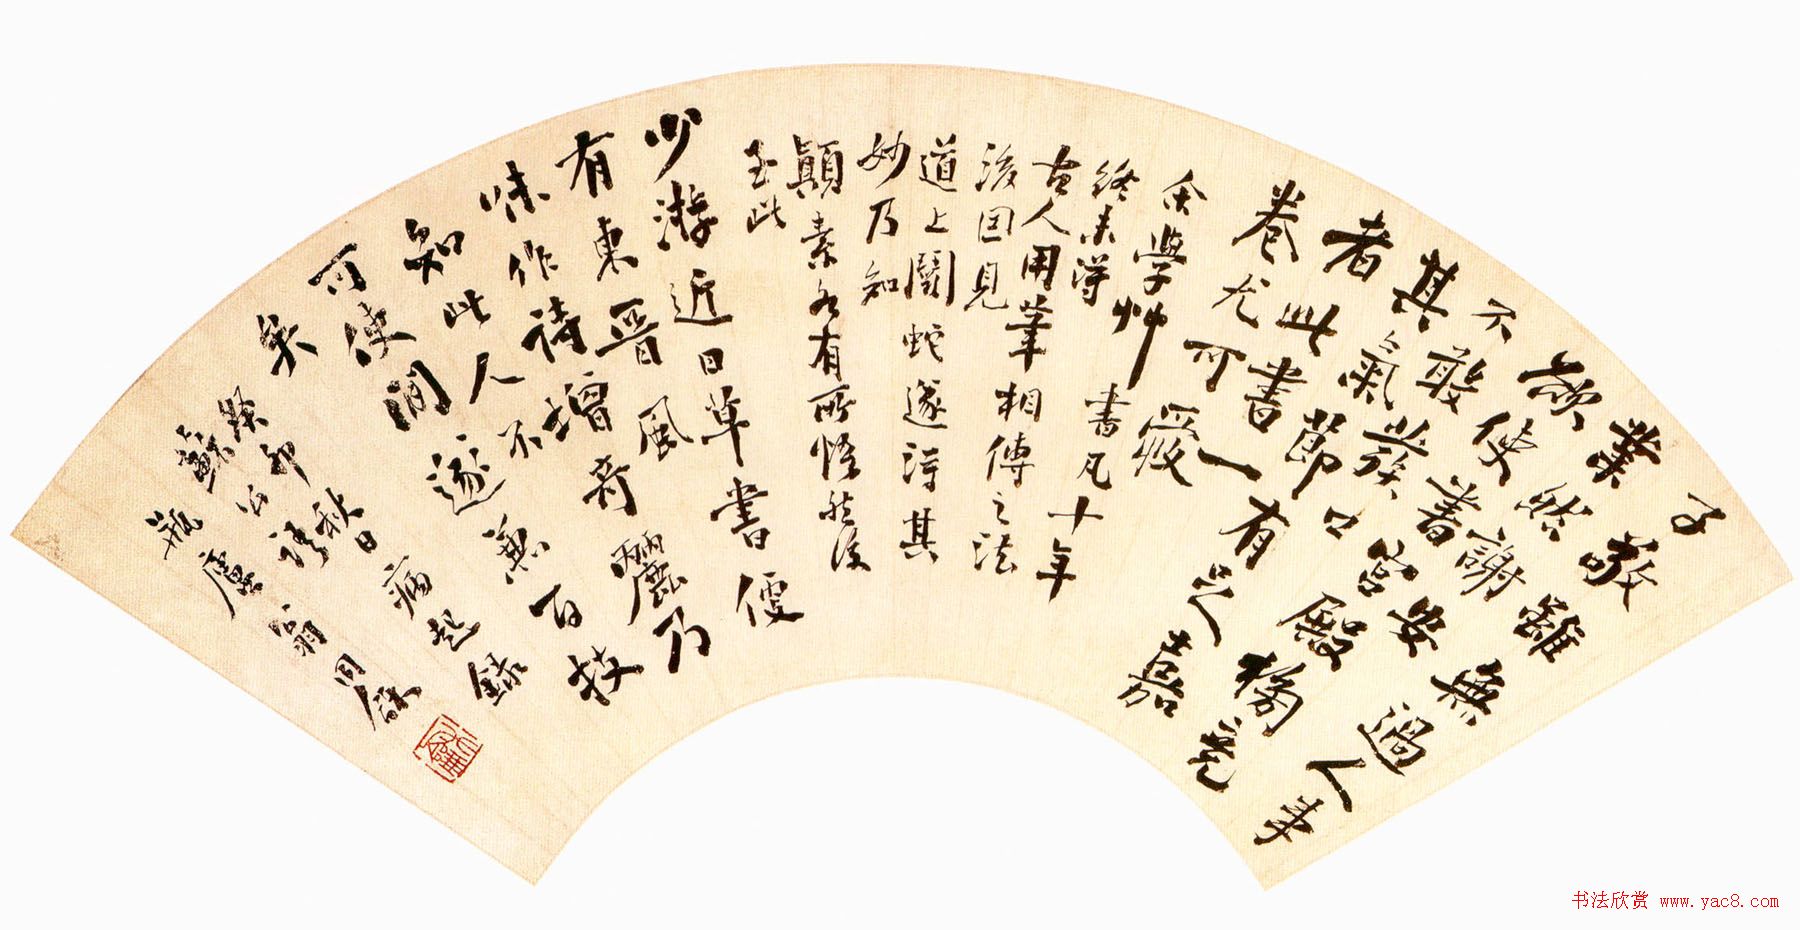 子敬雖無過人事
業然謝安
欲使書宮殿榜竟
不敢發口
其氣節有足嘉
者此書一
卷尤可愛
余學艸書凡十年
終未得
古人用筆相傳之法
後因見
道上鬭蛇遂得其
妙乃知
顛素各有所悟然後
至此
少游近日草書便
有東晉風
味作詩增奇麗乃
知此人不
可使閒遂兼百技
矣
癸卯秋日病起錄
蘇公語
瓶廬翁同龢
书法欣赏 www.yac8.com